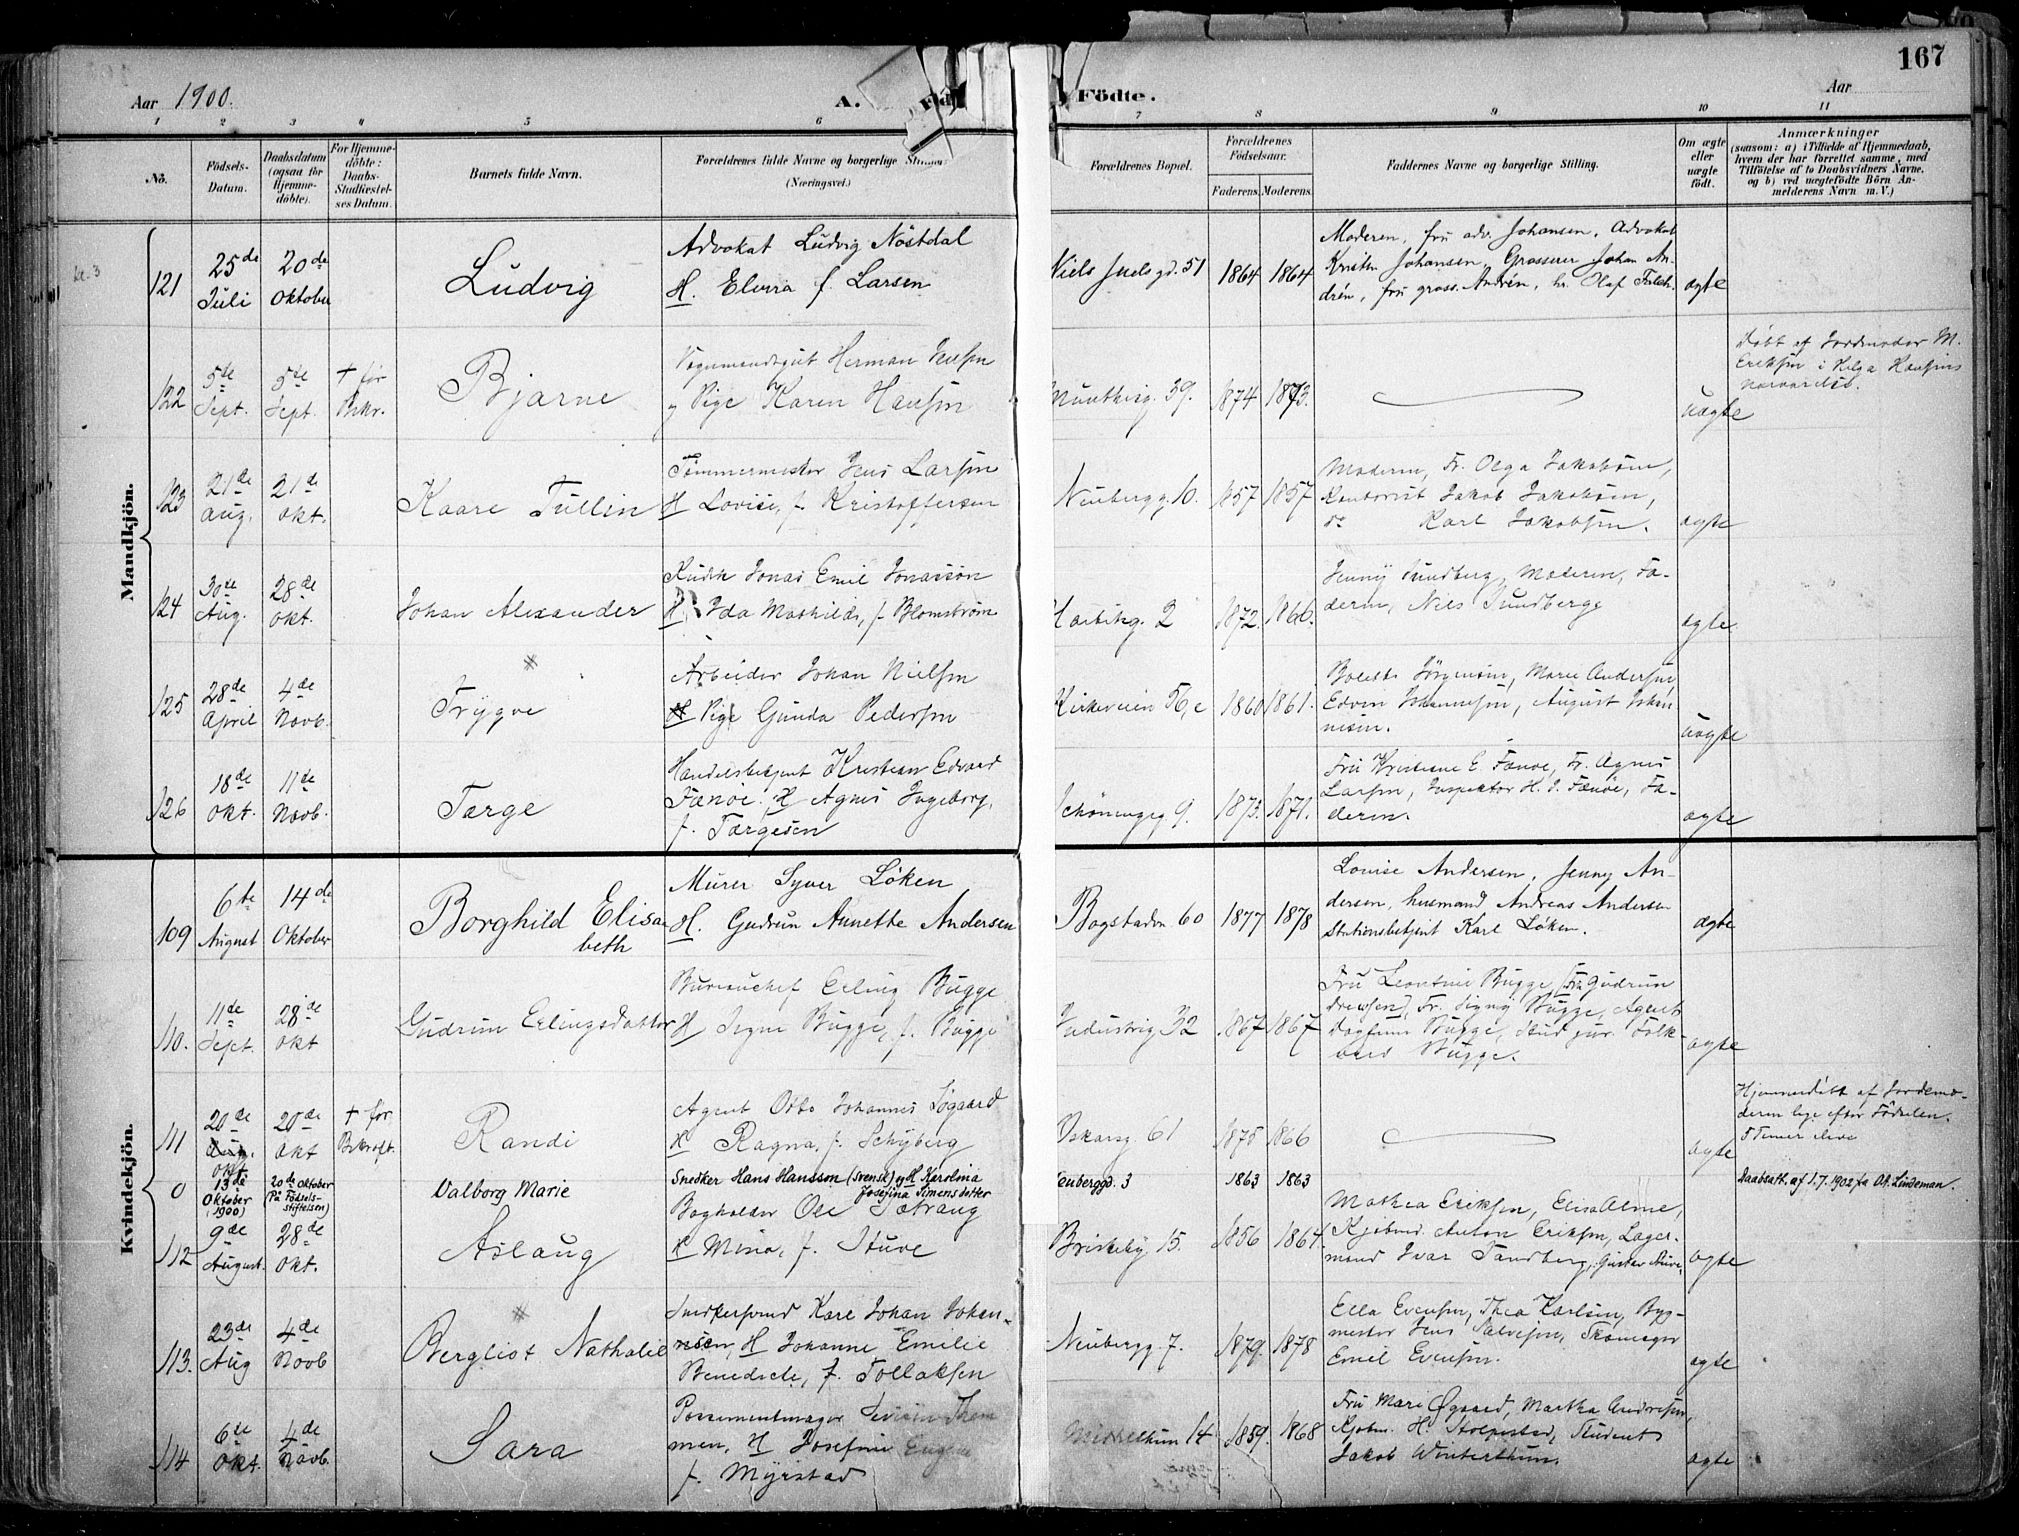 167
Aar 1900.
A.
Födte.
Aar
1 2 3 4 5 6 7 8 9 10 11
No.
Födsels-Datum.
Daabsdatum (ogsaa för Hjemmedöbte).
For Hjemmedöbte: Daabs-Stadfæstelses Datum.
Barnets fulde Navn.
Forældrenes fulde Navne og borgerlige
(Næringsvei.)
Forældrenes Bopæl.
Forældrenes Födselsaar.
Faderens.
Moderens.
Faddernes Navne og borgerlige Stilling.
Om ægte eller uægte födt.
Anmærkninger
(saasom: a) i Tilfælde af Hjemmedaab, hvem der har forrettet samme, med Tilföielse af to Daabsvidners Navne, og b) ved uægtefödte Börn Anmelderens Navn m. V.)
Mandkjön.
121
25de Juli
20de Oktober
Ludvig
Advokat Ludvig Nöstdal
H. Elvira f. Larsen
Niels Juels gd. 51
1864
1864
Moderen, fru adv. Johansen, Advokat
Kristen Johansen, Grosserer Johan An-
drén, fru gross. Andrén, hr. Olaf
ægte
122
5te Sept.
5te Sept.
† før Bekr.
Bjarne
Herman Jensen
Pige Karen Hansen
39.
1874
1873.
uægte
Døbt af Jordmoder M.
Eriksen i Helga Hansens
nærværelse.
123
21de Aug.
21de Okt.
Kaare Tullin
Tömmermester Jens Larsen
H Lovise, f. Kristoffersen
Neubergg. 10.
1857
1857
Moderen, Fr. Olga Jakobsen,
Kontorist Jakob Jakobsen,
do Karl Jakobsen.
ægte
124
30te Aug.
28de Okt.
Johan Alexander
Kudsk Jonas Emil Jonasson
H. Ida Mathilde, f. Blomström
2
1872.
1866.
Jenny Sundberg, Moderen, Fa-
deren, Niels Sundberg
ægte
125
28de April
4de Novb.
Trygve
Arbeider Johan Nielsen
Pige Gunda Pedersen
Kirkeveien 56, c
1860
1861.
Bolette Jörgensen, Marie Andersen
Edvin Johannesen, August Johan-
nesen.
uægte
126
18de Okt.
11de Novb.
Targe
Handelsbetjent Kristian Edvard
Fænöe. H Agnes Ingeborg,
f. Targesen
Schöningsg. 9.
1873.
1871.
Fru Kristiane E. Fænöe, Fr. Agnes
Larsen, Inspektör H. J. Fænöe, Fa-
deren.
ægte
Kvindekjön.
109
6te August
14de Oktober
Borghild Elisa-
beth
Murer Syver Löken
H. Gudrun Annette Andersen
Bogstadv. 60
1877
1878
Louise Andersen, Jenny An-
dersen, husmand Andreas Andersen
Stationsbetjent Karl Löken.
ægte
110.
11de Sept.
28de Okt
Gudrun Erlingsdatter
Bureauchef Erling Bugge
H Signe Bugge, f. Bugge
Industrig 32
1867
1867
Fru Leontine Bugge, Gudrun
Fr. Signy Bugge, Agent
Bugge, Stud jur. Folk-
vard Bugge.
ægte
111
20de Aug. Okt.
20de Okt
† før Bekræft.
Randi
Agent Otto Johannes Sögaard
H Ragna, f. Schyberg
Oskarsg 61
1875
1866
ægte
Hjemmedöbt af Jordemo-
deren lige efter Födselen.
0
13de Oktober (1900)
20de Oktober (På Födselsstiftelsen)
Valborg Marie
Snedker Hans Hansson (svensk) og H Karolina
Josefina Simensdatter
Neuberggd. 3
1863
1863
Daabsatt. af 1.7.1902 fra Ol. Lindeman.
112
9de August.
28de Okt.
Aslaug
Bogholder Ole Sætrang
H Mina, f. Stuve
Briskeby 15.
1856
1864.
Mathea Eriksen, Elisa Alme,
Kjøbmd. Anton Eriksen, Lager-
mand Ivar Sandberg, Gustav Stuve.
ægte
113.
23de Aug
4de Novb
Bergliot Nathalie
Snedkersvend Karl Johan Johan-
nesen, H Johanne Emilie
Benedicte, f. Tollaksen
Neubergg 7.
1879.
1878
Ella Evensen, Thea Karlsen, Byg-
mester Jens Salvesen,
Emil Evensen.
ægte
114
6te Okt.
4de Novb.
Sara
Possementmager
men, H Josefine
f. Myrstad
14
1859.
1868
Fru Marie Øgaard, Martha Andresen,
Kjøbm. H. Stolpestad, Student
Jakob Winterthun.
ægte